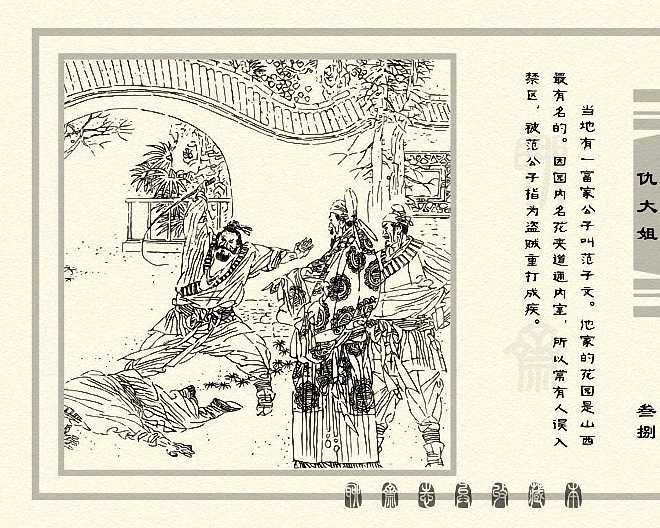 当地有一富家公子叫范子文。他家的花园是山西
最有名的。因园内名花夹道通内室，所以常有人误入
禁区，被范公子指为盗贼重打成疾。
仇大姐
叁捌
聊斋志异收藏本